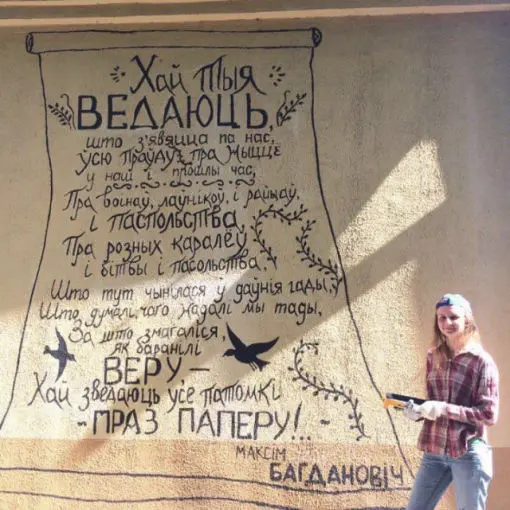 Хай тыя
ВЕДАЮЦЬ,
што з'явяцца па нас,
усю праўду пра жыццё
у наш і прошлы час,
Пра воінаў, лаўнікоў і райцаў,
і паспольства,
Пра розных каралёў
і бітвы і пасольства.
Што тут чынілася ў даўнія гады,
Што думалі, чаго жадалі мы тады,
За што змагаліся,
як баранілі
ВЕРУ –
Хай зведаюць усе патомкі
- ПРАЗ ПАПЕРУ! -
МАКСІМ
БАГДАНОВІЧ